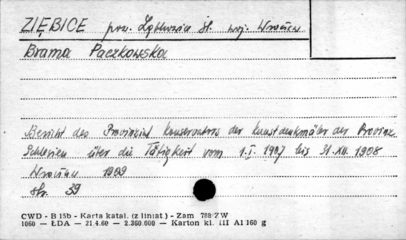 ZIĘBICE pow. Ząbkowice Śl. woj. Wrocław
Brama Paczkowska
Bericht des Provinzial Konservators der Kunstdenkmäler der Provinz
Schlesien über die Tätigkeit vom 1.I.1907 bis 31.XII.1908
Wrocław 1909
str. 39
CWD - B 15b - Karta katal. (z liniat.) - Zam 788/ZW
1060 — ŁDA — 21.4.60 — 2.360.000 — Karton kl. III A1 160 g